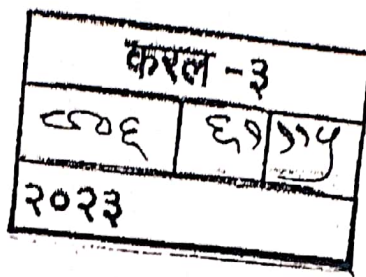 करल - ३
६१ ११५
२०२३